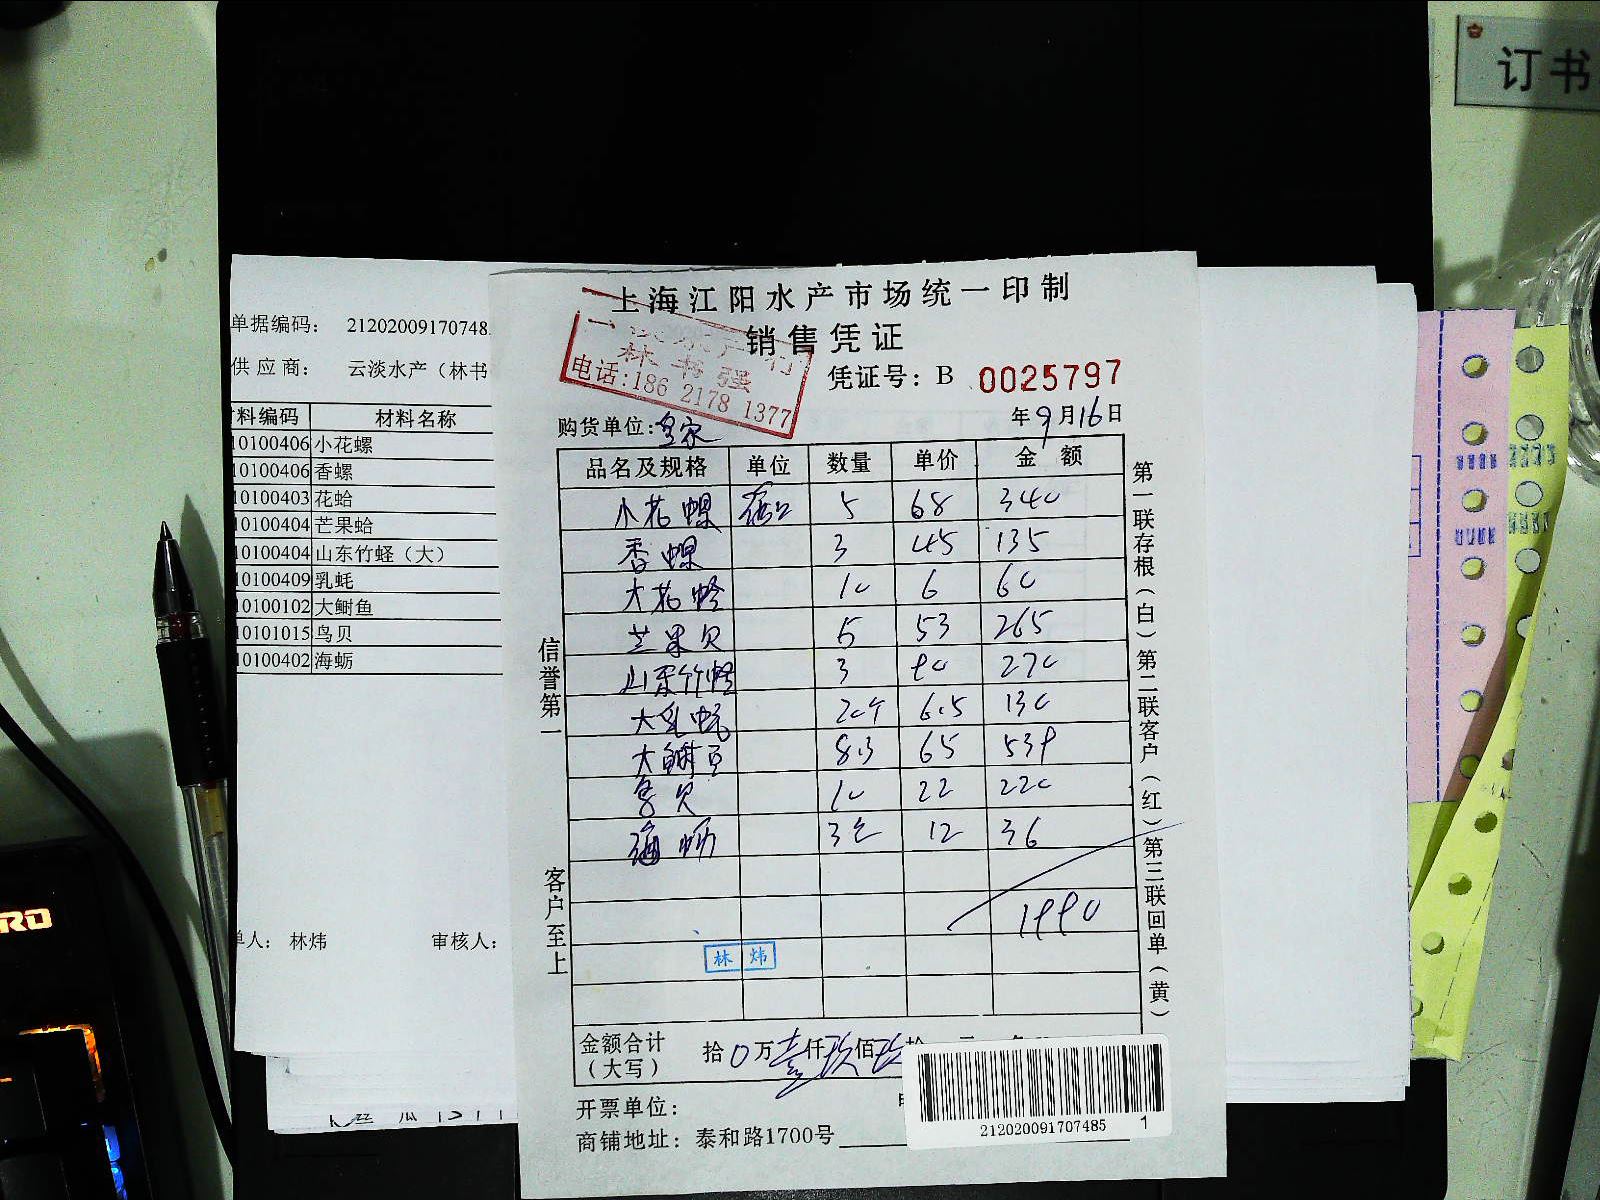 订书
上海江阳水产市场统一印制
销售凭证
林书强
电话:186 2178 1377
凭证号: B 0025797
购货单位:皇家
年9月16日
品名及规格 单位 数量 单价 金额
小花螺 5 68 340
香螺 3 45 135
大花蛤 10 6 60
芒果贝 5 53 265
山东竹蛏 3 90 270
大乳蚝 20个 6.5 130
大鲥鱼 8.3 65 539
鸟贝 10 22 220
海蛎 3包 12 36
1990
林炜
金额合计
（大写）
拾0万壹仟玖佰玖拾
开票单位:
商铺地址: 泰和路1700号
信誉第一
客户至上
第一联存根（白）第二联客户（红）第三联回单（黄）
212020091707485 1
单据编码: 21202009170748
供应商: 云淡水产（林书
材料编码 材料名称
10100406 小花螺
10100406 香螺
10100403 花蛤
10100404 芒果蛤
10100404 山东竹蛏（大）
10100409 乳蚝
10100102 大鲥鱼
10101015 鸟贝
10100402 海蛎
单人: 林炜 审核人:
RD